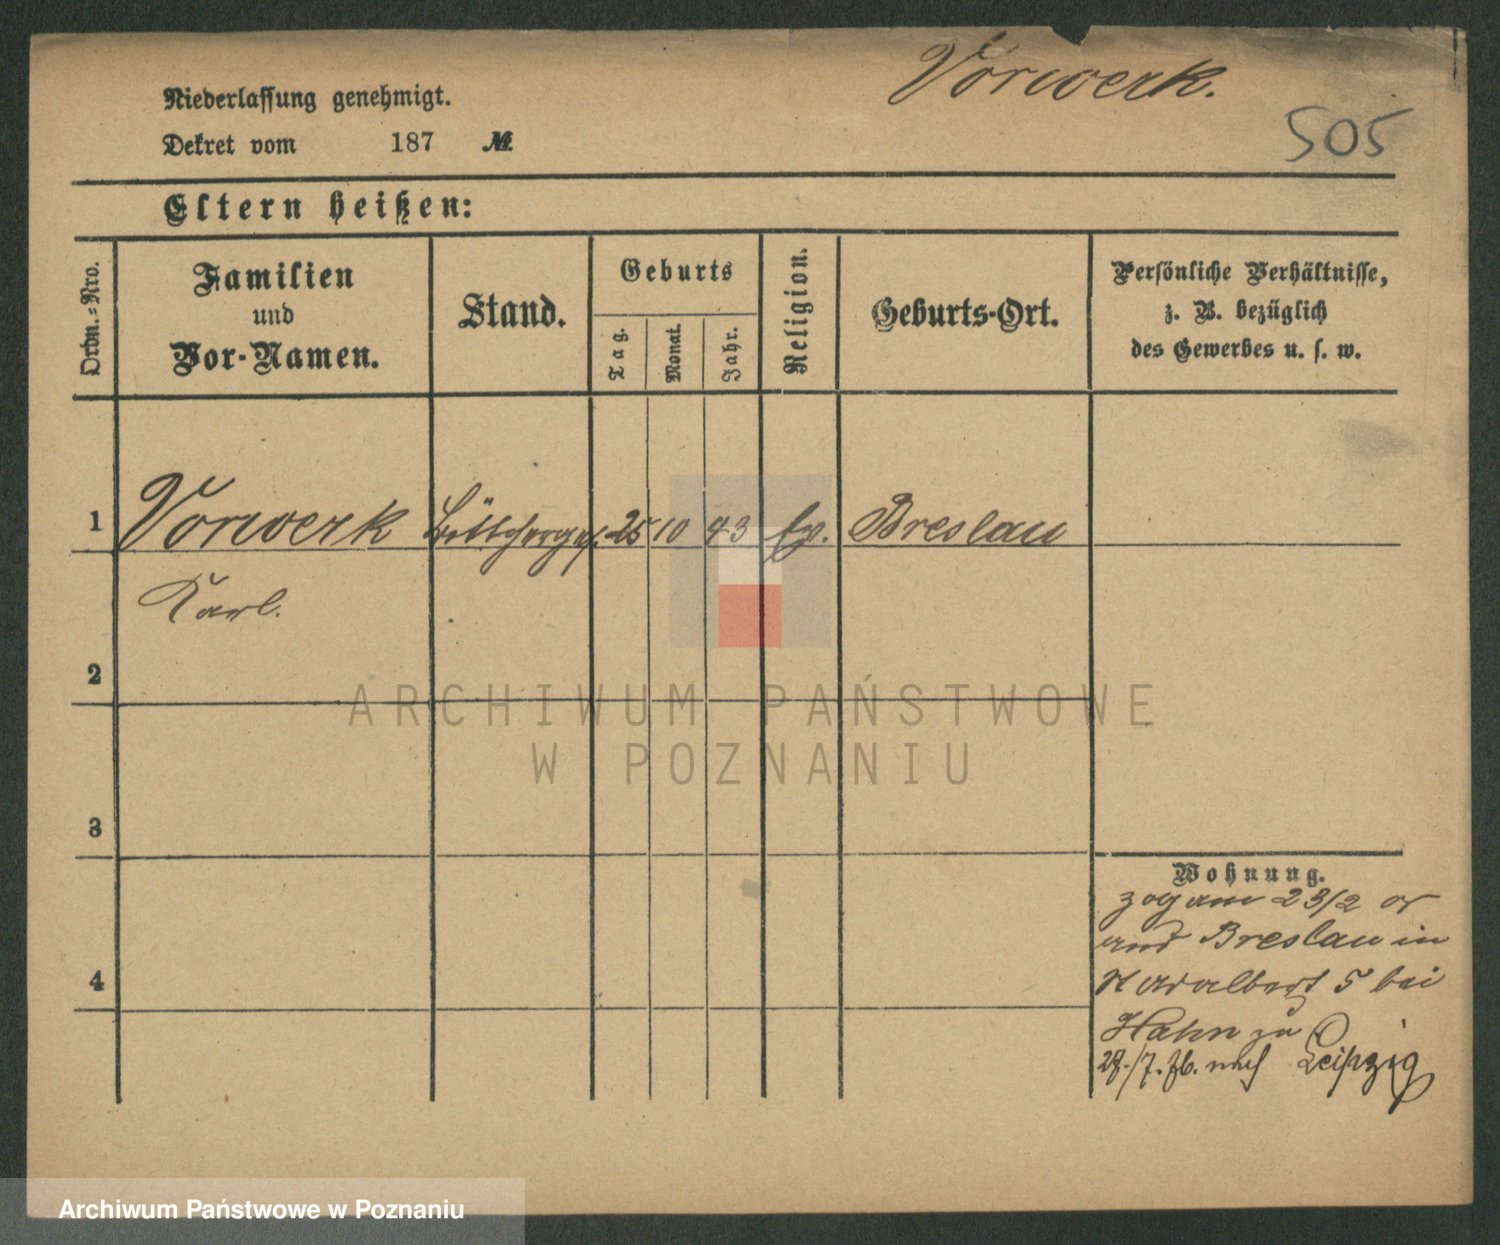 Vorwerk.
505
Niederlassung genehmigt.
Dekret vom 187 №
Eltern heißen:
Ordn.=Nro.
Familien
und
Vor-Namen.
Stand.
Geburts
Tag.
Monat.
Jahr.
Religion.
Geburts-Ort.
Persönliche Verhältnisse,
z. B. bezüglich
des Gewerbes u. s. w.
1 Vorwerk Böttcherges. 25 10 43 Ev. Breslau
Karl.
2
3
4
Wohnung.
zog am 23/2 cr
aus Breslau in
St Adalbert 5 bei
Hahn zu
27./7. 76. nach Leipzig
ARCHIWUM PAŃSTWOWE
W POZNANIU
Archiwum Państwowe w Poznaniu